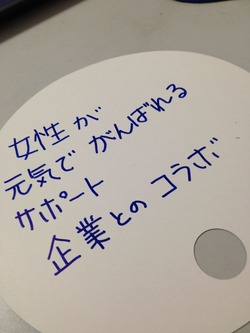 女性が
元気で がんばれる
サポート
企業との コラボ